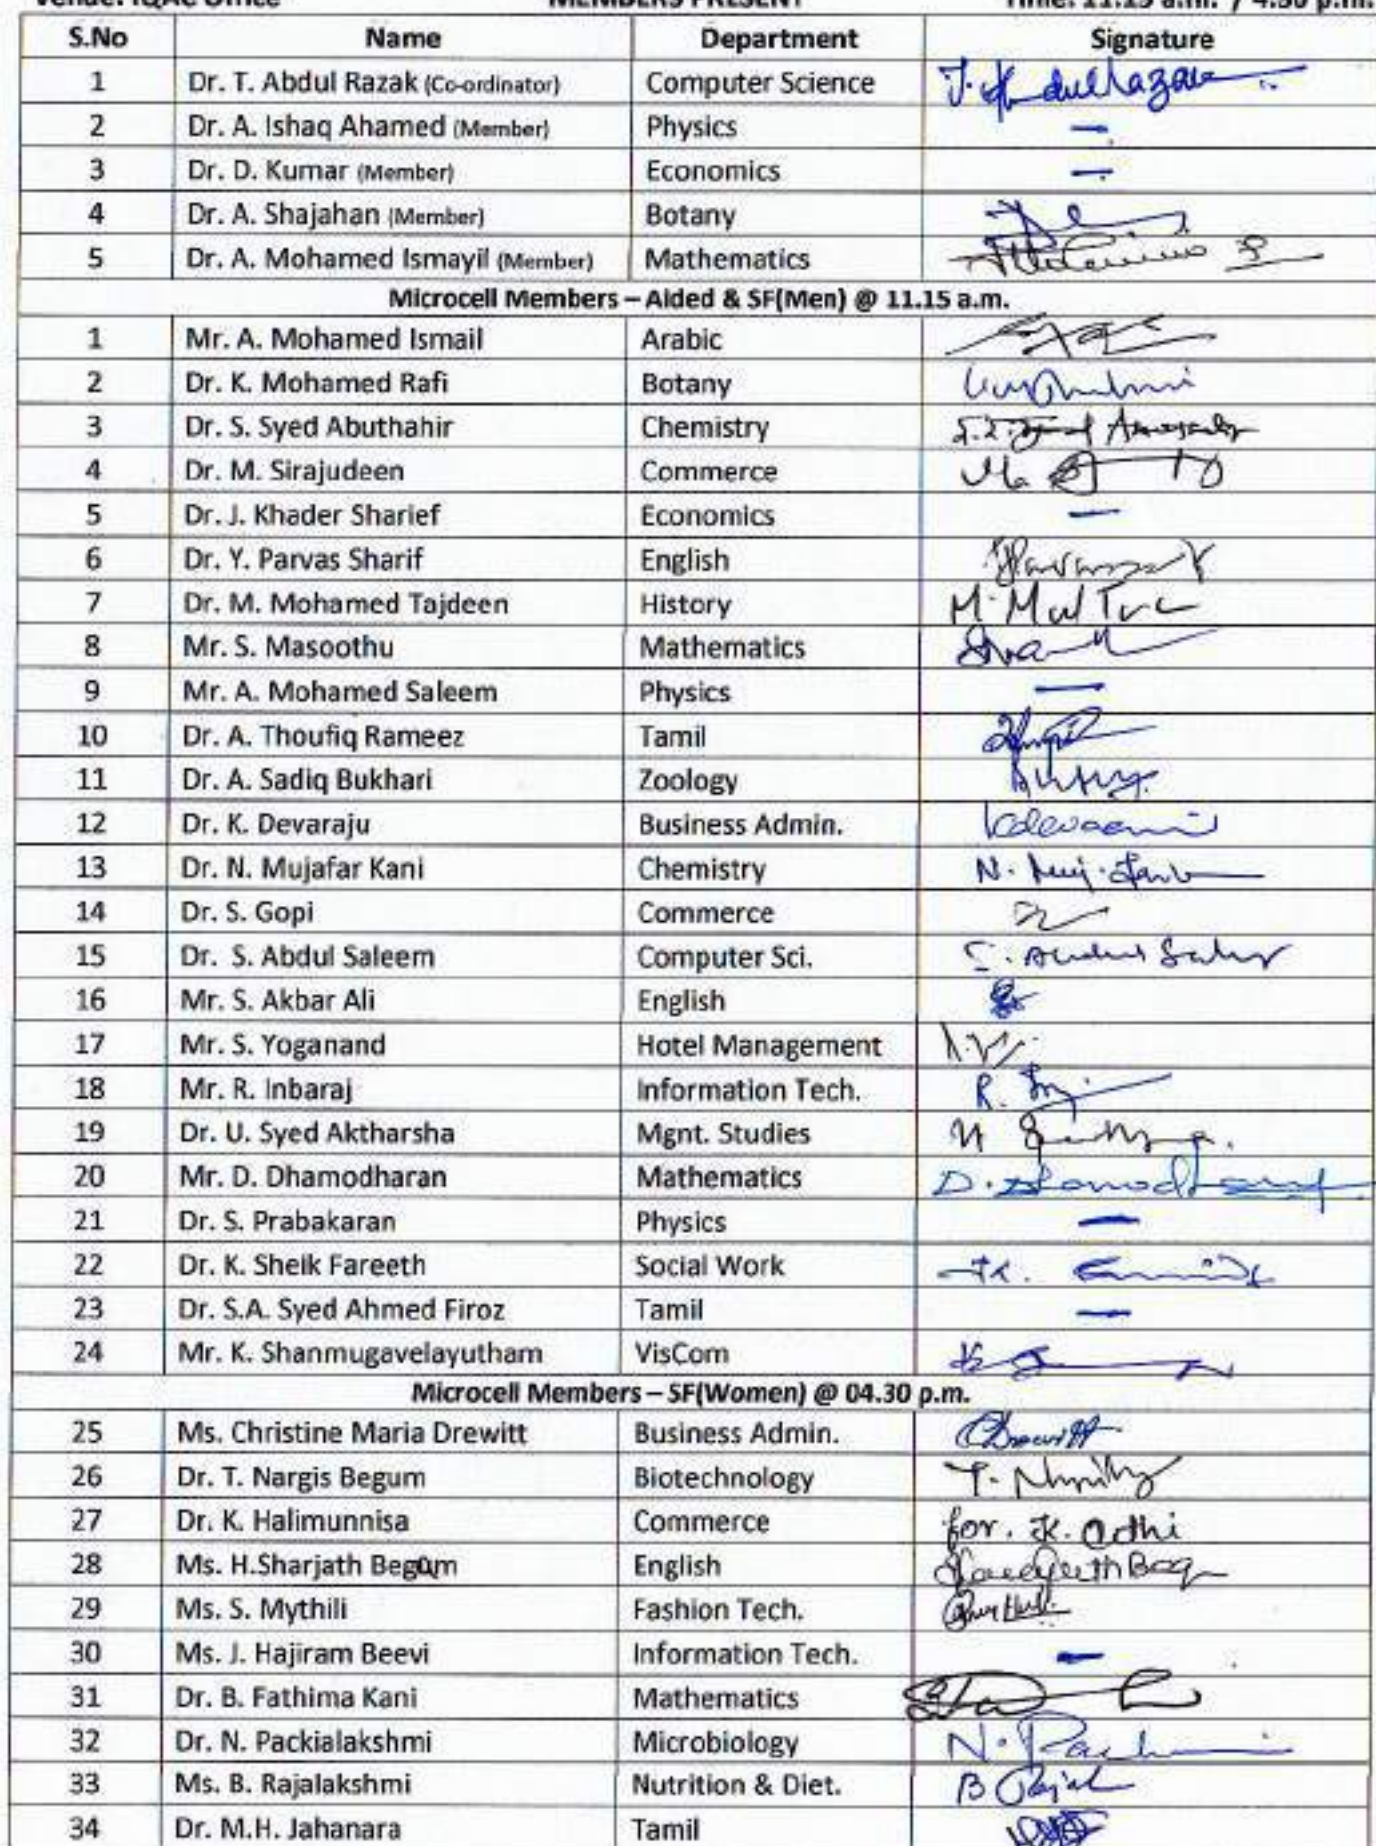 Venue: IQAC Office MEMBERS PRESENT Time: 11.15 a.m. / 4.30 p.m.
S.No Name Department Signature
1 Dr. T. Abdul Razak (Co-ordinator) Computer Science T. Abdul Razak
2 Dr. A. Ishaq Ahamed (Member) Physics —
3 Dr. D. Kumar (Member) Economics —
4 Dr. A. Shajahan (Member) Botany
5 Dr. A. Mohamed Ismayil (Member) Mathematics
Microcell Members – Aided & SF(Men) @ 11.15 a.m.
1 Mr. A. Mohamed Ismail Arabic
2 Dr. K. Mohamed Rafi Botany
3 Dr. S. Syed Abuthahir Chemistry
4 Dr. M. Sirajudeen Commerce
5 Dr. J. Khader Sharief Economics —
6 Dr. Y. Parvas Sharif English
7 Dr. M. Mohamed Tajdeen History
8 Mr. S. Masoothu Mathematics
9 Mr. A. Mohamed Saleem Physics —
10 Dr. A. Thoufiq Rameez Tamil
11 Dr. A. Sadiq Bukhari Zoology
12 Dr. K. Devaraju Business Admin.
13 Dr. N. Mujafar Kani Chemistry
14 Dr. S. Gopi Commerce
15 Dr. S. Abdul Saleem Computer Sci.
16 Mr. S. Akbar Ali English
17 Mr. S. Yoganand Hotel Management
18 Mr. R. Inbaraj Information Tech.
19 Dr. U. Syed Aktharsha Mgnt. Studies
20 Mr. D. Dhamodharan Mathematics
21 Dr. S. Prabakaran Physics —
22 Dr. K. Sheik Fareeth Social Work
23 Dr. S.A. Syed Ahmed Firoz Tamil —
24 Mr. K. Shanmugavelayutham VisCom
Microcell Members – SF(Women) @ 04.30 p.m.
25 Ms. Christine Maria Drewitt Business Admin.
26 Dr. T. Nargis Begum Biotechnology
27 Dr. K. Halimunnisa Commerce for. K. Adhi
28 Ms. H.Sharjath Begum English
29 Ms. S. Mythili Fashion Tech.
30 Ms. J. Hajiram Beevi Information Tech. —
31 Dr. B. Fathima Kani Mathematics
32 Dr. N. Packialakshmi Microbiology
33 Ms. B. Rajalakshmi Nutrition & Diet.
34 Dr. M.H. Jahanara Tamil